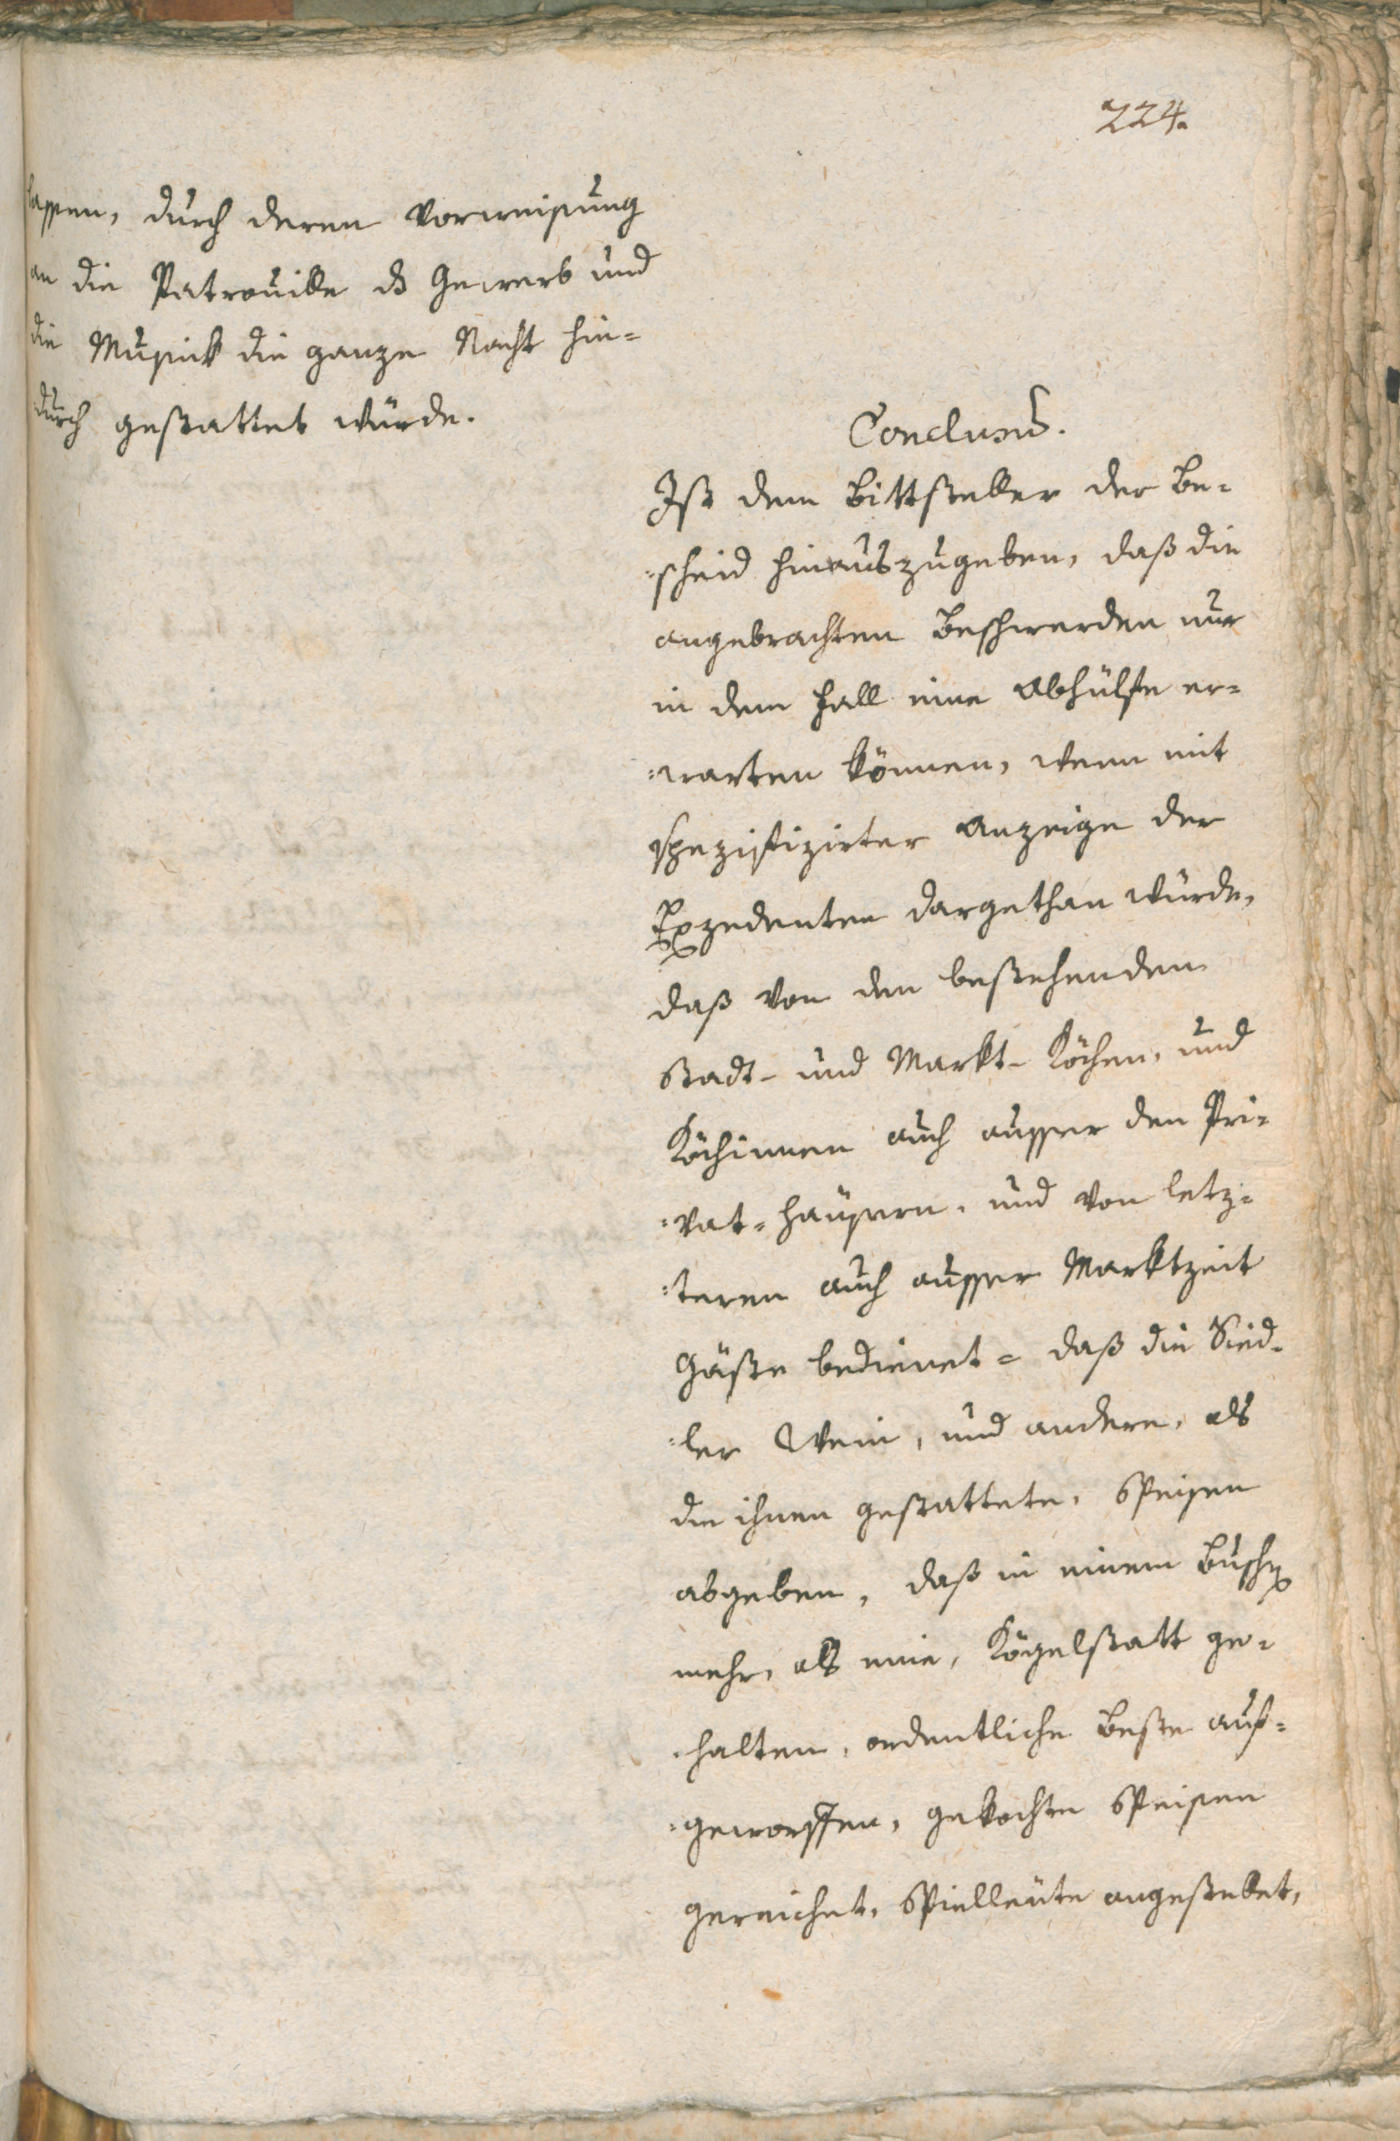 224.
lassen, durch deren Vorweisung
an die Patrouille ds Gewerb und
die Musick die ganze Nacht hin=
durch gestattet würde.
Conclusū.
Ist dem Bittsteller der Be=
=scheid hinauszugeben, daß die
angebrachten Beschwerden nur
in dem Fall eine Abhülfe er=
=warten können, wenn mit
spezifizirter Anzeige der
Exzedenten dargethan würde,
daß von den bestehenden
Stadt- und Markt-Köchen, und
Köchinnen auch ausser den Pri=
=vat=häusern, und von letz=
=teren auch ausser Marktzeit
Gäste bedienet = daß die Sied=
=ler Wein, und andere, als
die ihnen gestattete, Speisen
abgeben, daß in einem
mehr, als eine, Kögelstatt ge=
=halten, ordentliche Beste auf=
=geworffen, gekochte Speisen
gereichet, Spielleüte angestellet,